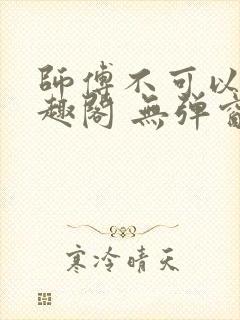 師傅不可以
趣閣 無彈
寒冷晴天